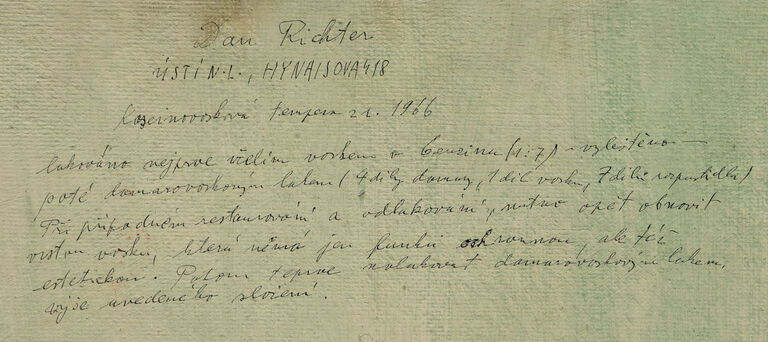 Dan Richter
ÚSTÍ N.L., HYNAISOVA 418
Kaseinovosková tempera z r. 1966
lakováno nejprve včelím voskem v benzinu (1:7) – vyleštěno –
poté damarovoskovým lakem (4 díly damary, 1 díl vosku, 7 dílů rozpustidla)
Při případném restaurování a odlakování, nutno opět obnovit
vrstvu vosku, která nemá jen funkci ochrannou, ale též
estetickou. Potom teprve nalakovat damarovoskovým lakem,
výše uvedeného složení.